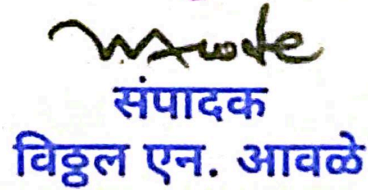 संपादक
विठ्ठल एन. आवळे